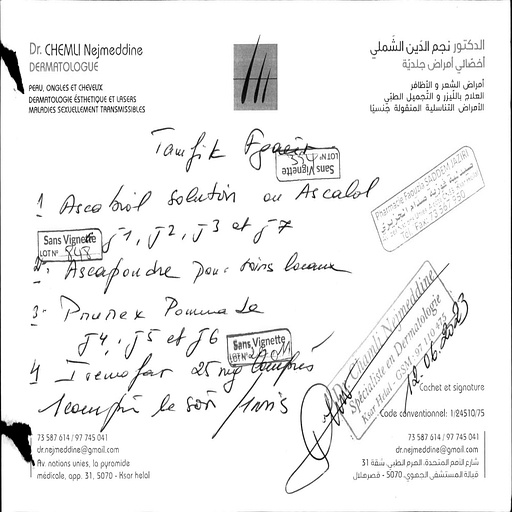 Dr. CHEMLI Nejmeddine
DERMATOLOGUE
PEAU, ONGLES ET CHEVEUX
DERMATOLOGIE ESTHETIQUE ET LASERS
MALADIES SEXUELLEMENT TRANSMISSIBLES
الدكتور نجم الدّين الشّملي
أخصّائي أمراض جلديّة
أمراض الشعر و الأظافر
العلاج بالليزر و التّجميل الطبّي
الأمراض التناسلية المنقولة جنسيّا
Taoufik
Sans Vignette
LOT N° 334
1 Ascabiol solution ou Ascalol
J1, J2, J3 et J7
Sans Vignette
LOT N° 848
2- Ascapoudre pour soins locaux
3- Prurex Pommade
J4, J5 et J6
Sans Vignette
LOT N°
4 25 mg comprimés
1 comprimé le soir / 1 mois
Pharmacie Faouzia
Dr Chamli Nejmeddine
Spécialiste en Dermatologie
Ksar Helal - GSM: 97 410 935
12.06.2023
Cachet et signature
Code conventionnel: 1/24510/75
73 587 614 / 97 745 041
dr.nejmeddine@gmail.com
Av. nations unies, la pyramide
médicale, app. 31, 5070 - Ksar helal
73 587 614 / 97 745 041
dr.nejmeddine@gmail.com
شارع الأمم المتحدة، الهرم الطبي، شقة 31
قبالة المستشفى الجهوي، 5070 - قصرهلال